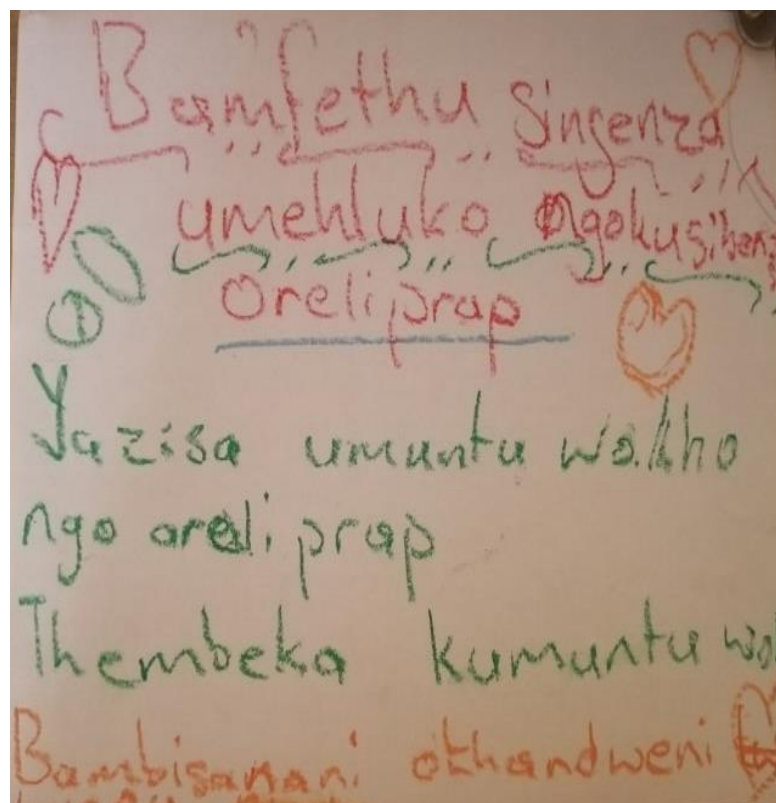 Bamfethu singenza
umehluko ngokusiben
oreliprap
Yazisa umuntu wakho
ngo oreli prap
Thembeka kumuntu wa
Bambisanani othandweni